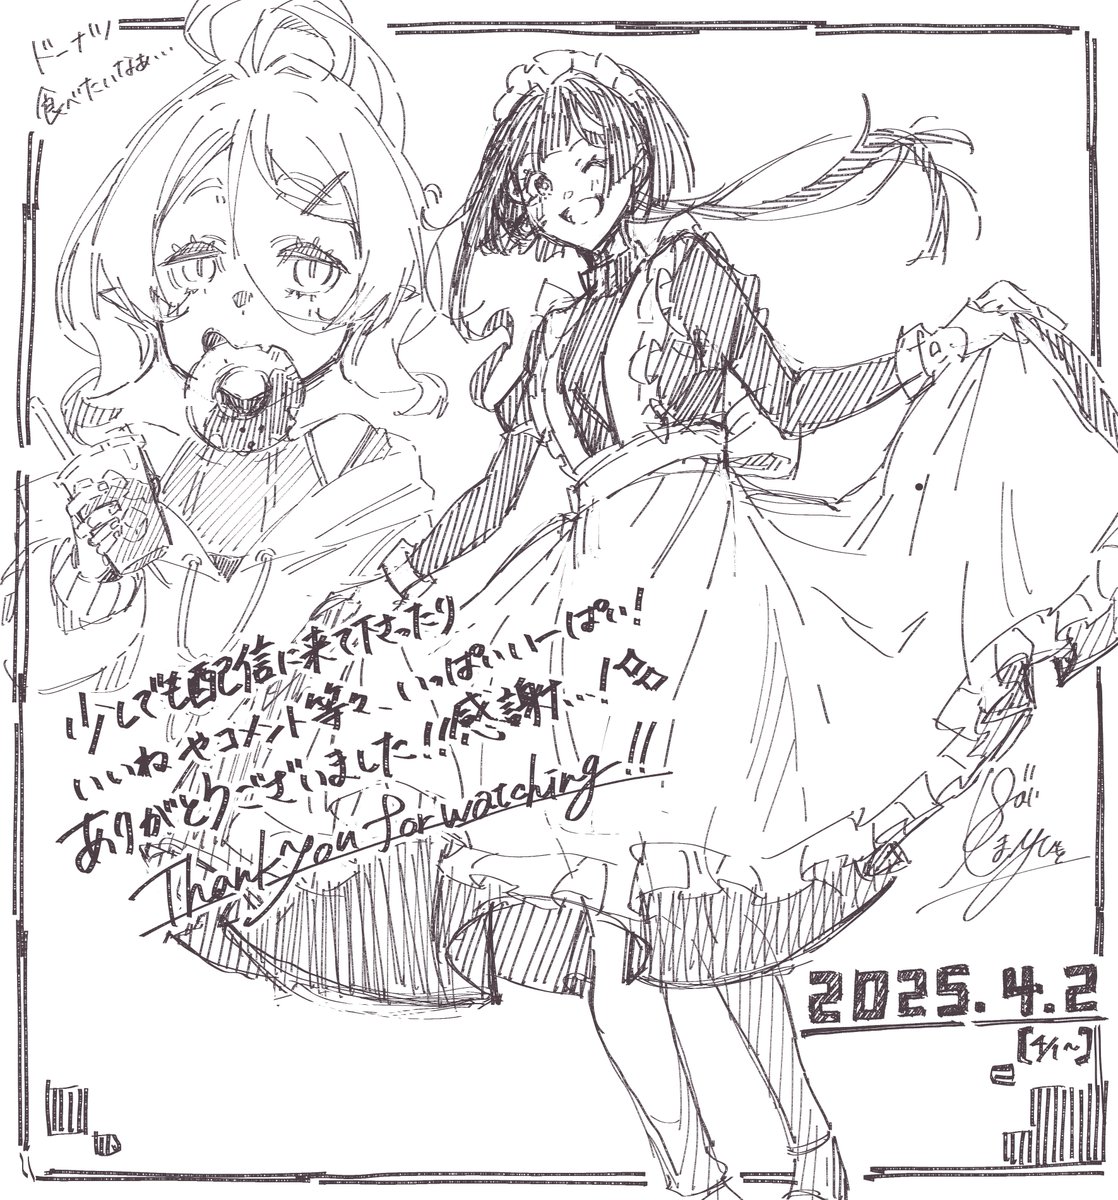 ドーナツ
食べたいなぁ…
少しでも配信に来て下さったり
いいねやコメント等々 いっぱいいーっぱい!
ありがとうございました!!感謝…!
Thank you for watching!!
2025.4.2
[4/1~]